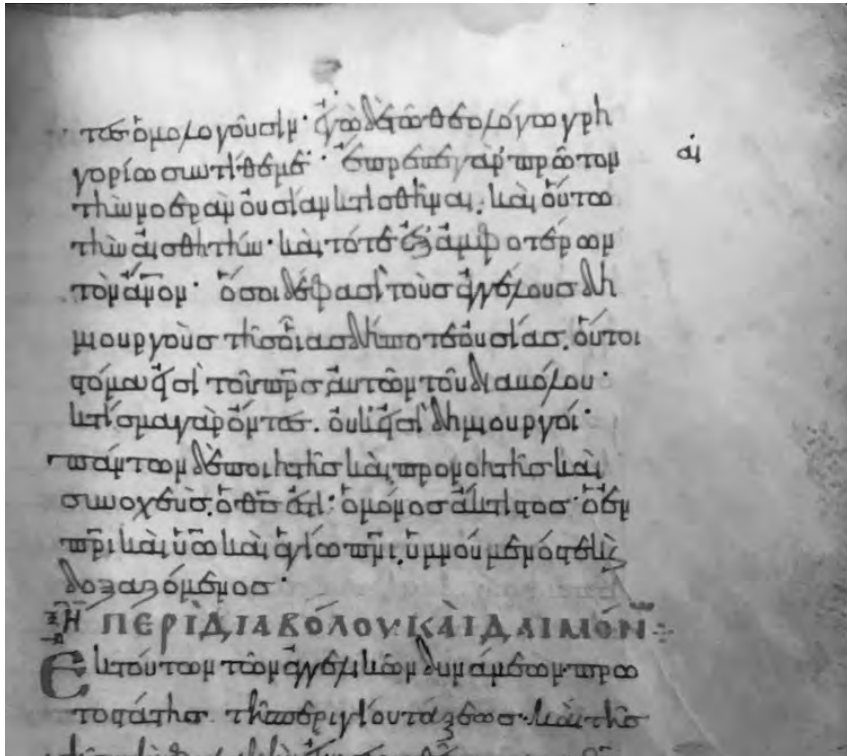 τες ὁμολογοῦσιν· ἐγὼ δὲ τῶ θεολόγω γρη
γορίω συντίθεμαι· ἔπρεπε γὰρ πρῶτον
αι
τὴν νοερὰν οὐσίαν κτισθῆναι, καὶ οὕτω
τὴν αἰσθητήν· καὶ τότε ἐξ ἀμφοτέρων
τὸν ἄνον· ὅσοι δέ φασὶ τοὺς ἀγγέλους δη
μιουργοὺς τῆς οἵας δήποτε οὐσίας, οὗτοι
στόμα εἰσὶ τοῦ πρς αὐτῶν τοῦ διαβόλου·
κτίσμα γὰρ ὄντες, οὐκ εἰσὶ δημιουργοί·
πάντων δὲ ποιητὴς καὶ προνοητὴς καὶ
συνοχεὺς, ὁ θς ἐστὶ· ὁ μόνος ἄκτιστος· ὁ ἐν
πρὶ καὶ υἱῶ καὶ ἁγίω πνι, ὑμνούμενός τε καὶ
δοξαζόμενος·
ΠΕΡΙ ΔΙΑΒΟΛΟΥ ΚΑΙ ΔΑΙΜΟΝΩΝ
Ἐκ τούτων τῶν ἀγγελικῶν δυνάμεων πρω
τοστάτης τῆς περιγείου τάξεως· καὶ τῆς